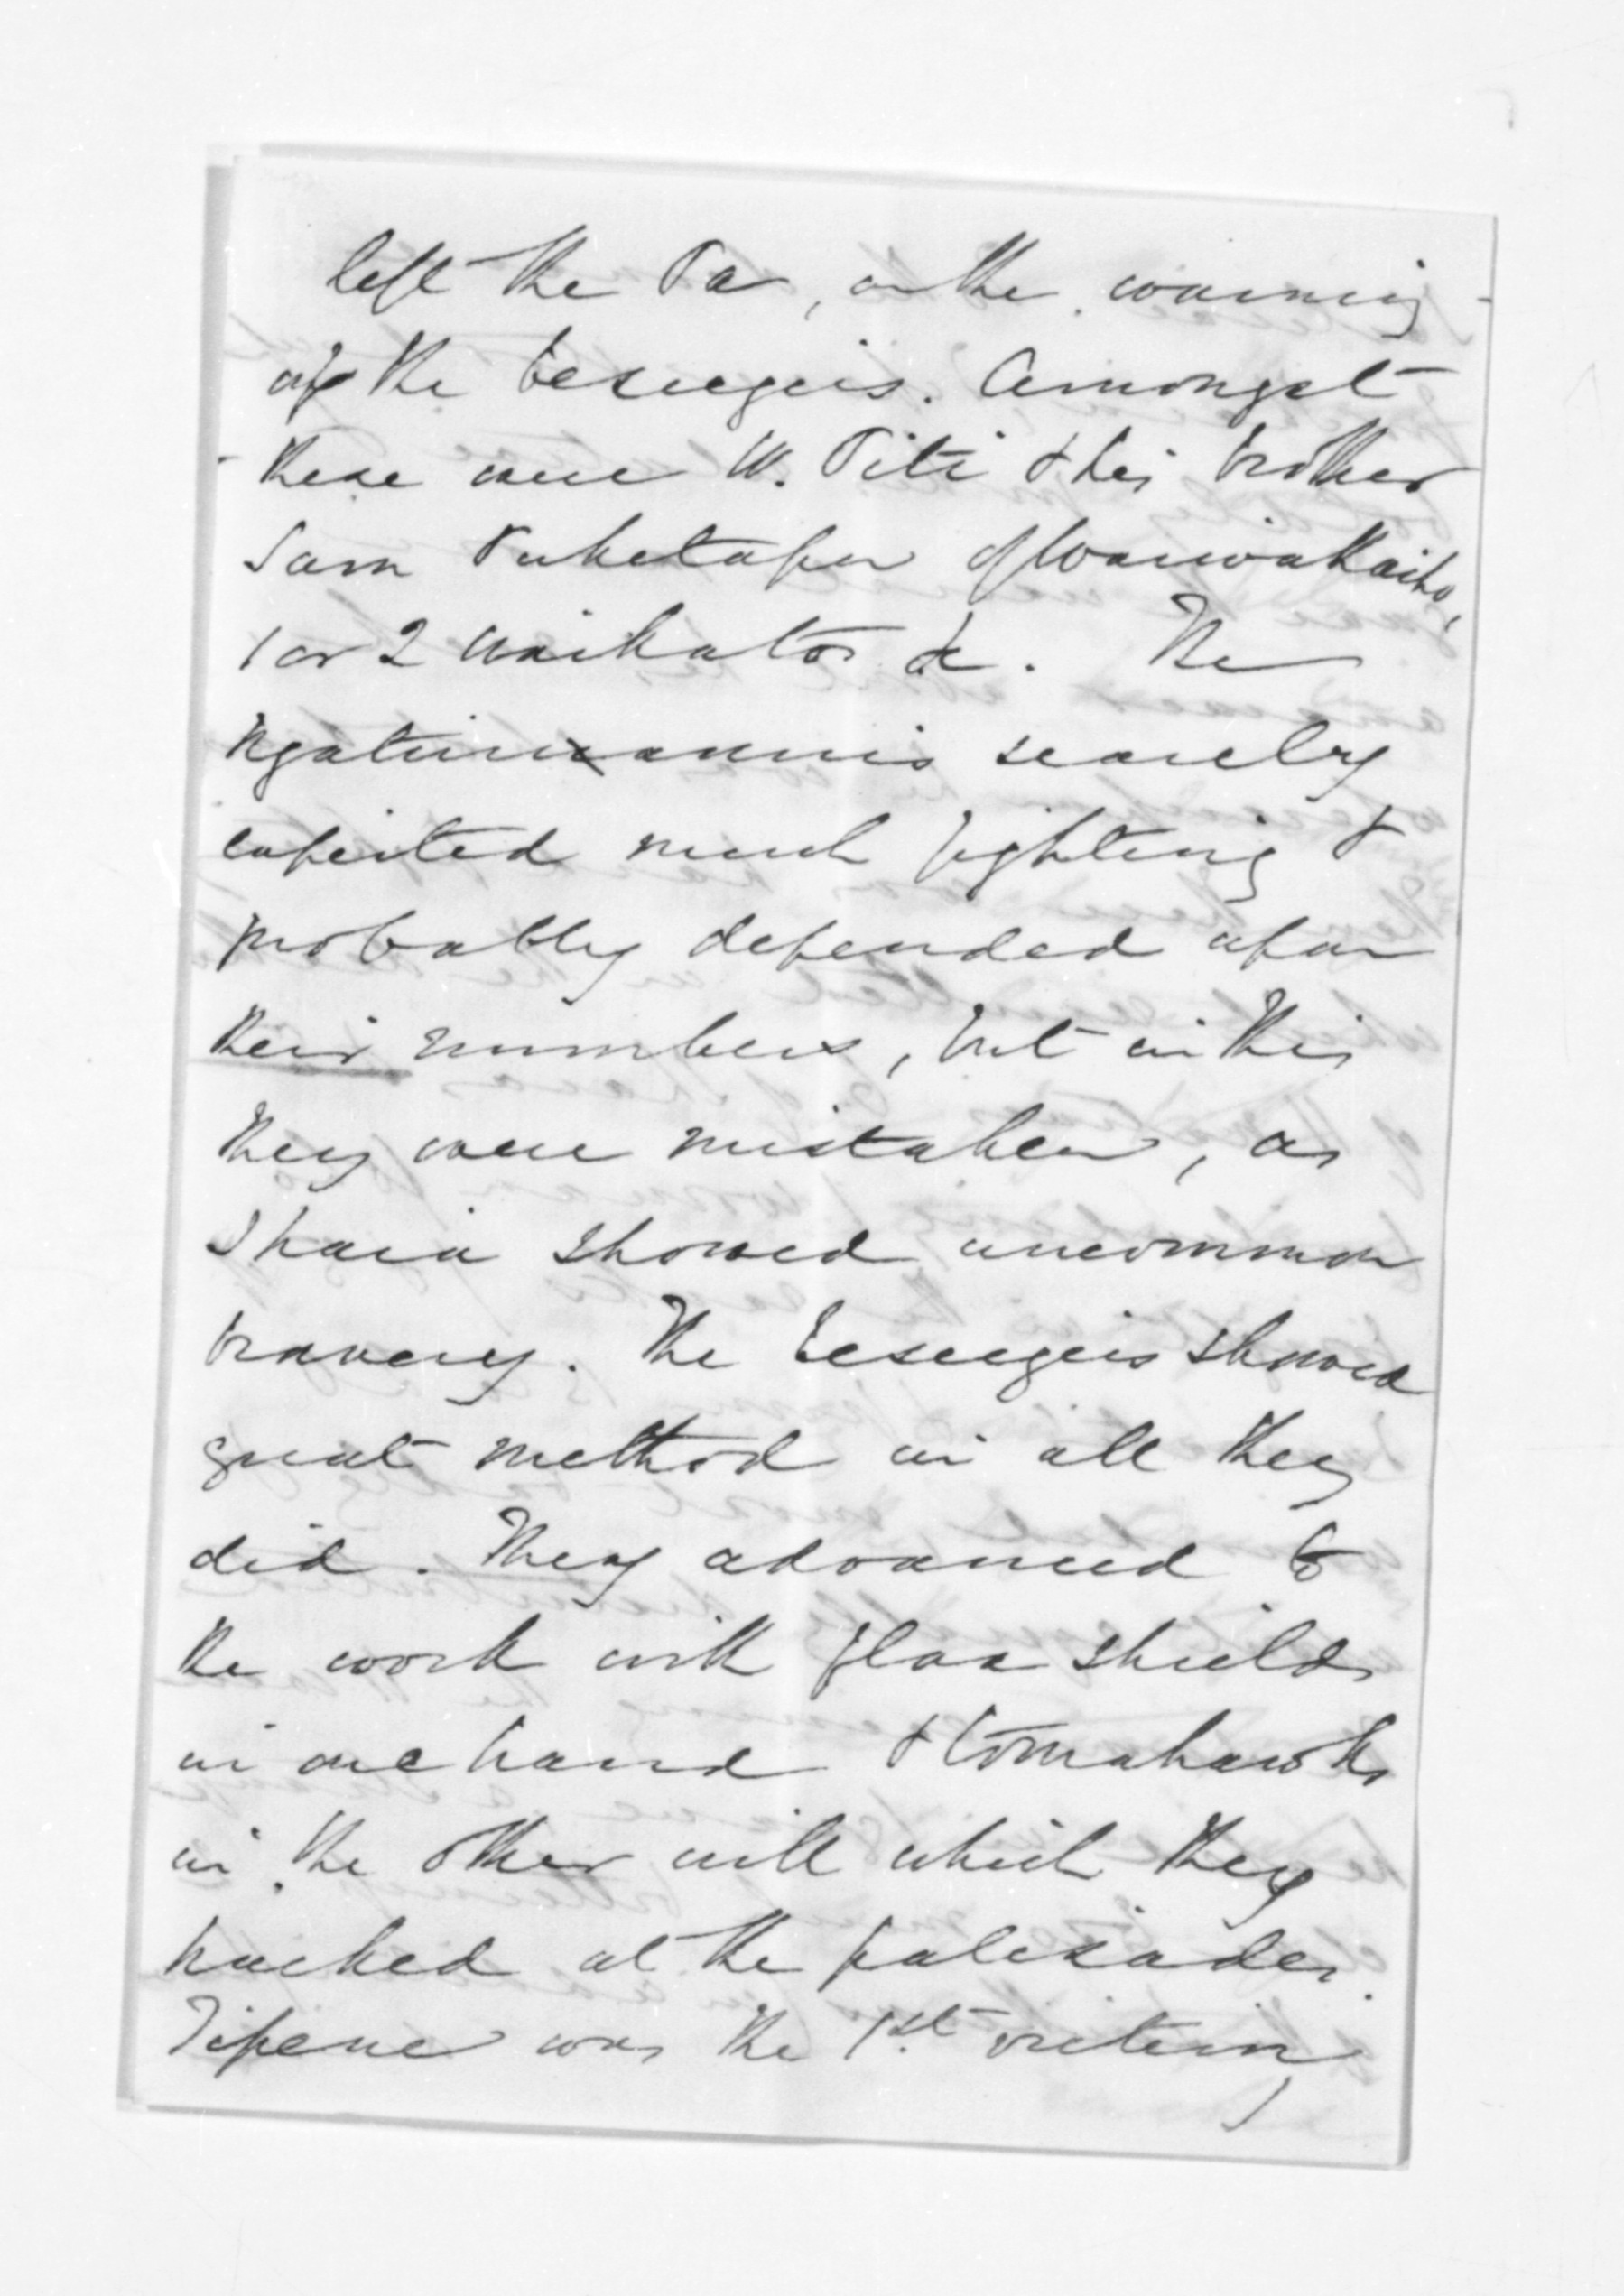 left the Pa, on the warning
of the beseigers. Amongst
these were W. Piti & his brother
Sam Puketapu of Waiwakaiho,
1 or 2 Waikatos &c. The
Ngatiruanuis scarcely
expected much fighting &
probably depended upon
their numbers, but in this
they were mistaken, as
Ihaia showed uncommon
bravery. The beseigers showed
great method in all they
did. They advanced to
the work with flax shields
in one hand & tomahawks
in the other with which they
hacked at the palisades.
Tipene was the 1st victim,